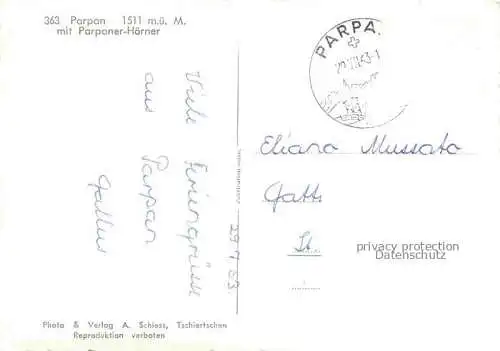 363 Parpan 1511 m.ü. M.
mit Parpaner-Hörner
PARPA.
Viele Feriengrüsse
aus
Parpan
Gallus
29 7 53.
Eliana Mussato
Gatti
St.
privacy protection
Datenschutz
Photo & Verlag A. Schloss, Tschiertschen
Reproduktion verboten